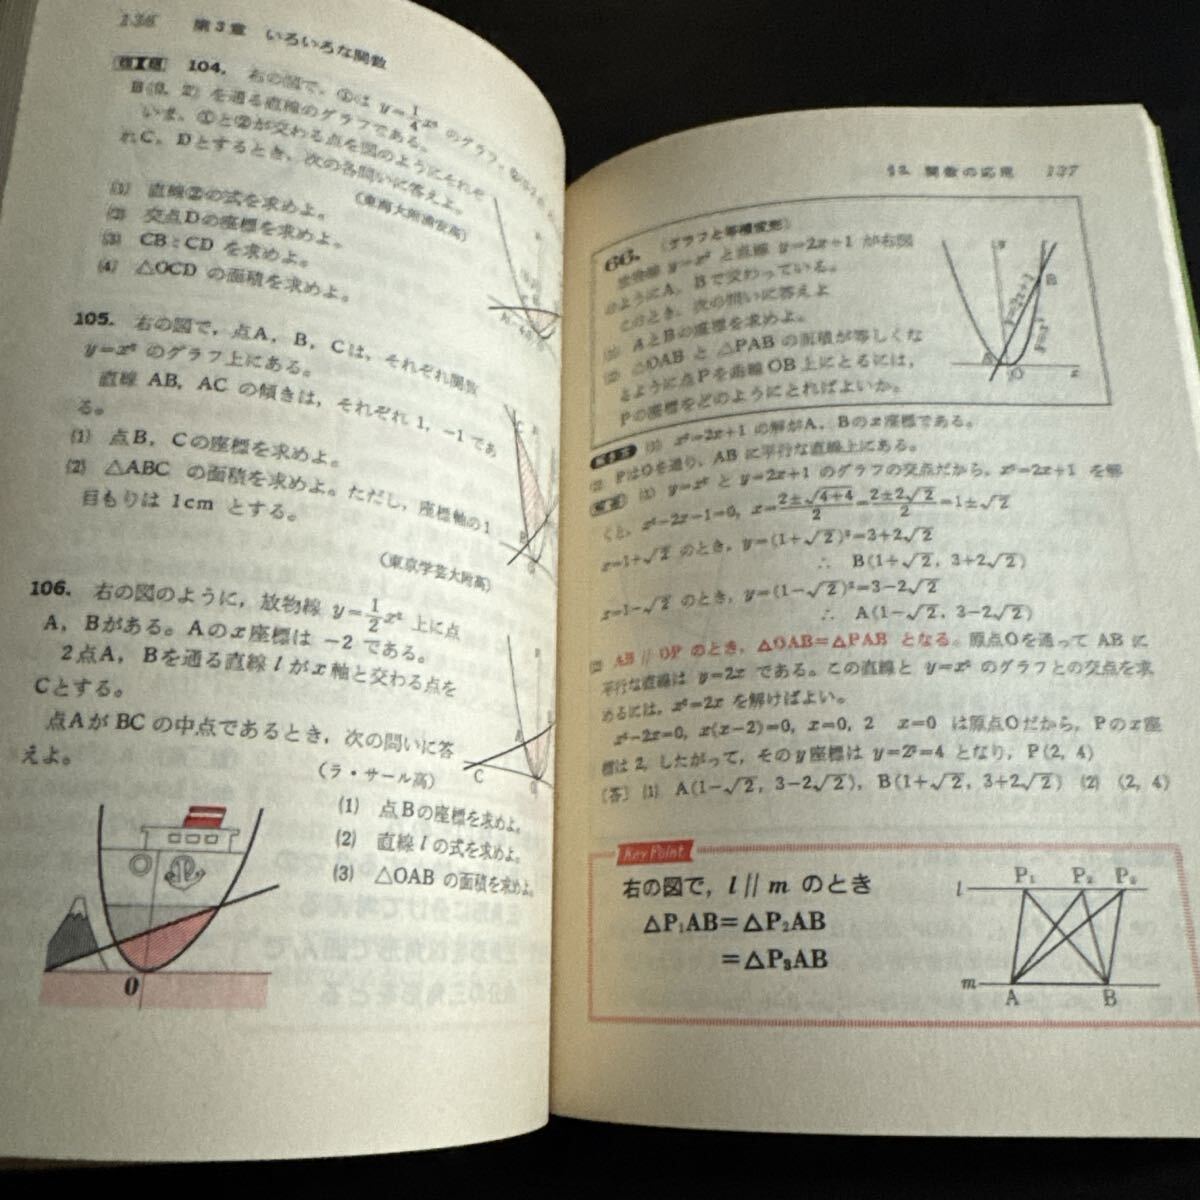 136 第3章 いろいろな関数
104. 右の図で，①は y=1/4x² のグラフ，②は
B(0, 2) を通る直線のグラフである。
いま，①と②が交わる点を図のようにそれぞ
れC，Dとするとき，次の各問いに答えよ。
(東海大附浦安高)
(1) 直線②の式を求めよ。
(2) 交点Dの座標を求めよ。
(3) CB:CD を求めよ。
(4) △OCD の面積を求めよ。
105. 右の図で，点A，B，Cは，それぞれ関数
y=x² のグラフ上にある。
直線 AB，AC の傾きは，それぞれ 1，-1 であ
る。
(1) 点B，Cの座標を求めよ。
(2) △ABC の面積を求めよ。ただし，座標軸の1
目もりは 1cm とする。
(東京学芸大附高)
106. 右の図のように，放物線 y=1/2x² 上に点
A，Bがある。Aのx座標は -2 である。
2点A，Bを通る直線 l がx軸と交わる点を
Cとする。
点AがBCの中点であるとき，次の問いに答
えよ。
(ラ・サール高)
(1) 点Bの座標を求めよ。
(2) 直線 l の式を求めよ。
(3) △OAB の面積を求めよ。
C
A
O
0
§2. 関数の応用 137
66. (グラフと等積変形)
放物線 y=x² と直線 y=2x+1 が右図
のようにA，Bで交わっている。
このとき，次の問いに答えよ
(1) AとBの座標を求めよ。
(2) △OAB と △PAB の面積が等しくな
るように点Pを曲線 OB 上にとるには，
Pの座標をどのようにとればよいか。
y=2x+1
B
y=x²
A
O
x
解き方 (1) x²=2x+1 の解がA，Bのx座標である。
(2) PはOを通り，AB に平行な直線上にある。
解答 (1) y=x² と y=2x+1 のグラフの交点だから，x²=2x+1 を解
くと，x²-2x-1=0，x=2±√4+4/2=2±2√2/2=1±√2
x=1+√2 のとき，y=(1+√2)²=3+2√2
∴ B(1+√2，3+2√2)
x=1-√2 のとき，y=(1-√2)²=3-2√2
∴ A(1-√2，3-2√2)
(2) AB // OP のとき，△OAB=△PAB となる。原点Oを通って AB に
平行な直線は y=2x である。この直線と y=x² のグラフとの交点を求
めるには，x²=2x を解けばよい。
x²-2x=0，x(x-2)=0，x=0，2 x=0 は原点Oだから，Pのx座
標は 2，したがって，そのy座標は y=2²=4 となり，P(2, 4)
〔答〕(1) A(1-√2，3-2√2)，B(1+√2，3+2√2) (2) (2, 4)
Key Point
右の図で，l // m のとき
△P₁AB=△P₂AB
=△P₃AB
l
P₁ P₂ P₃
m
A B